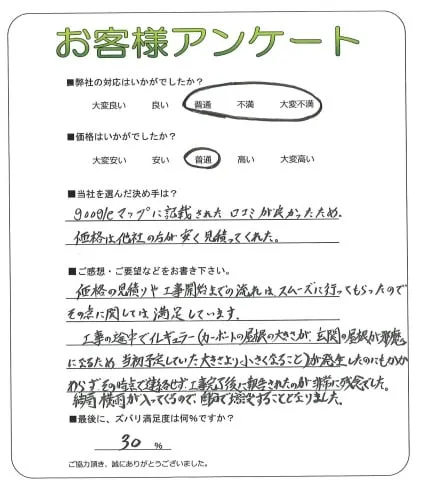 お客様アンケート
■弊社の対応はいかがでしたか？
大変良い 良い 普通 不満 大変不満
■価格はいかがでしたか？
大変安い 安い 普通 高い 大変高い
■当社を選んだ決め手は？
googleマップに記載された口コミが良かったため．
価格は他社の方が安く見積ってくれた。
■ご感想・ご要望などをお書き下さい。
価格の見積りや工事開始までの流れは、スムーズに行ってもらったので
その点に関しては満足しています。
工事の途中でイレギュラー(カーポートの屋根の大きさが、玄関の屋根が邪魔
になるため当初予定していた大きさより小さくなること)が発生したのにもかか
わらずその時点で連絡せず工事完了後に報告されたのが非常に残念でした。
結局横雨が入ってくるので、することとなりました。
■最後に、ズバリ満足度は何％ですか？
30 ％
ご協力頂き、誠にありがとうございました。